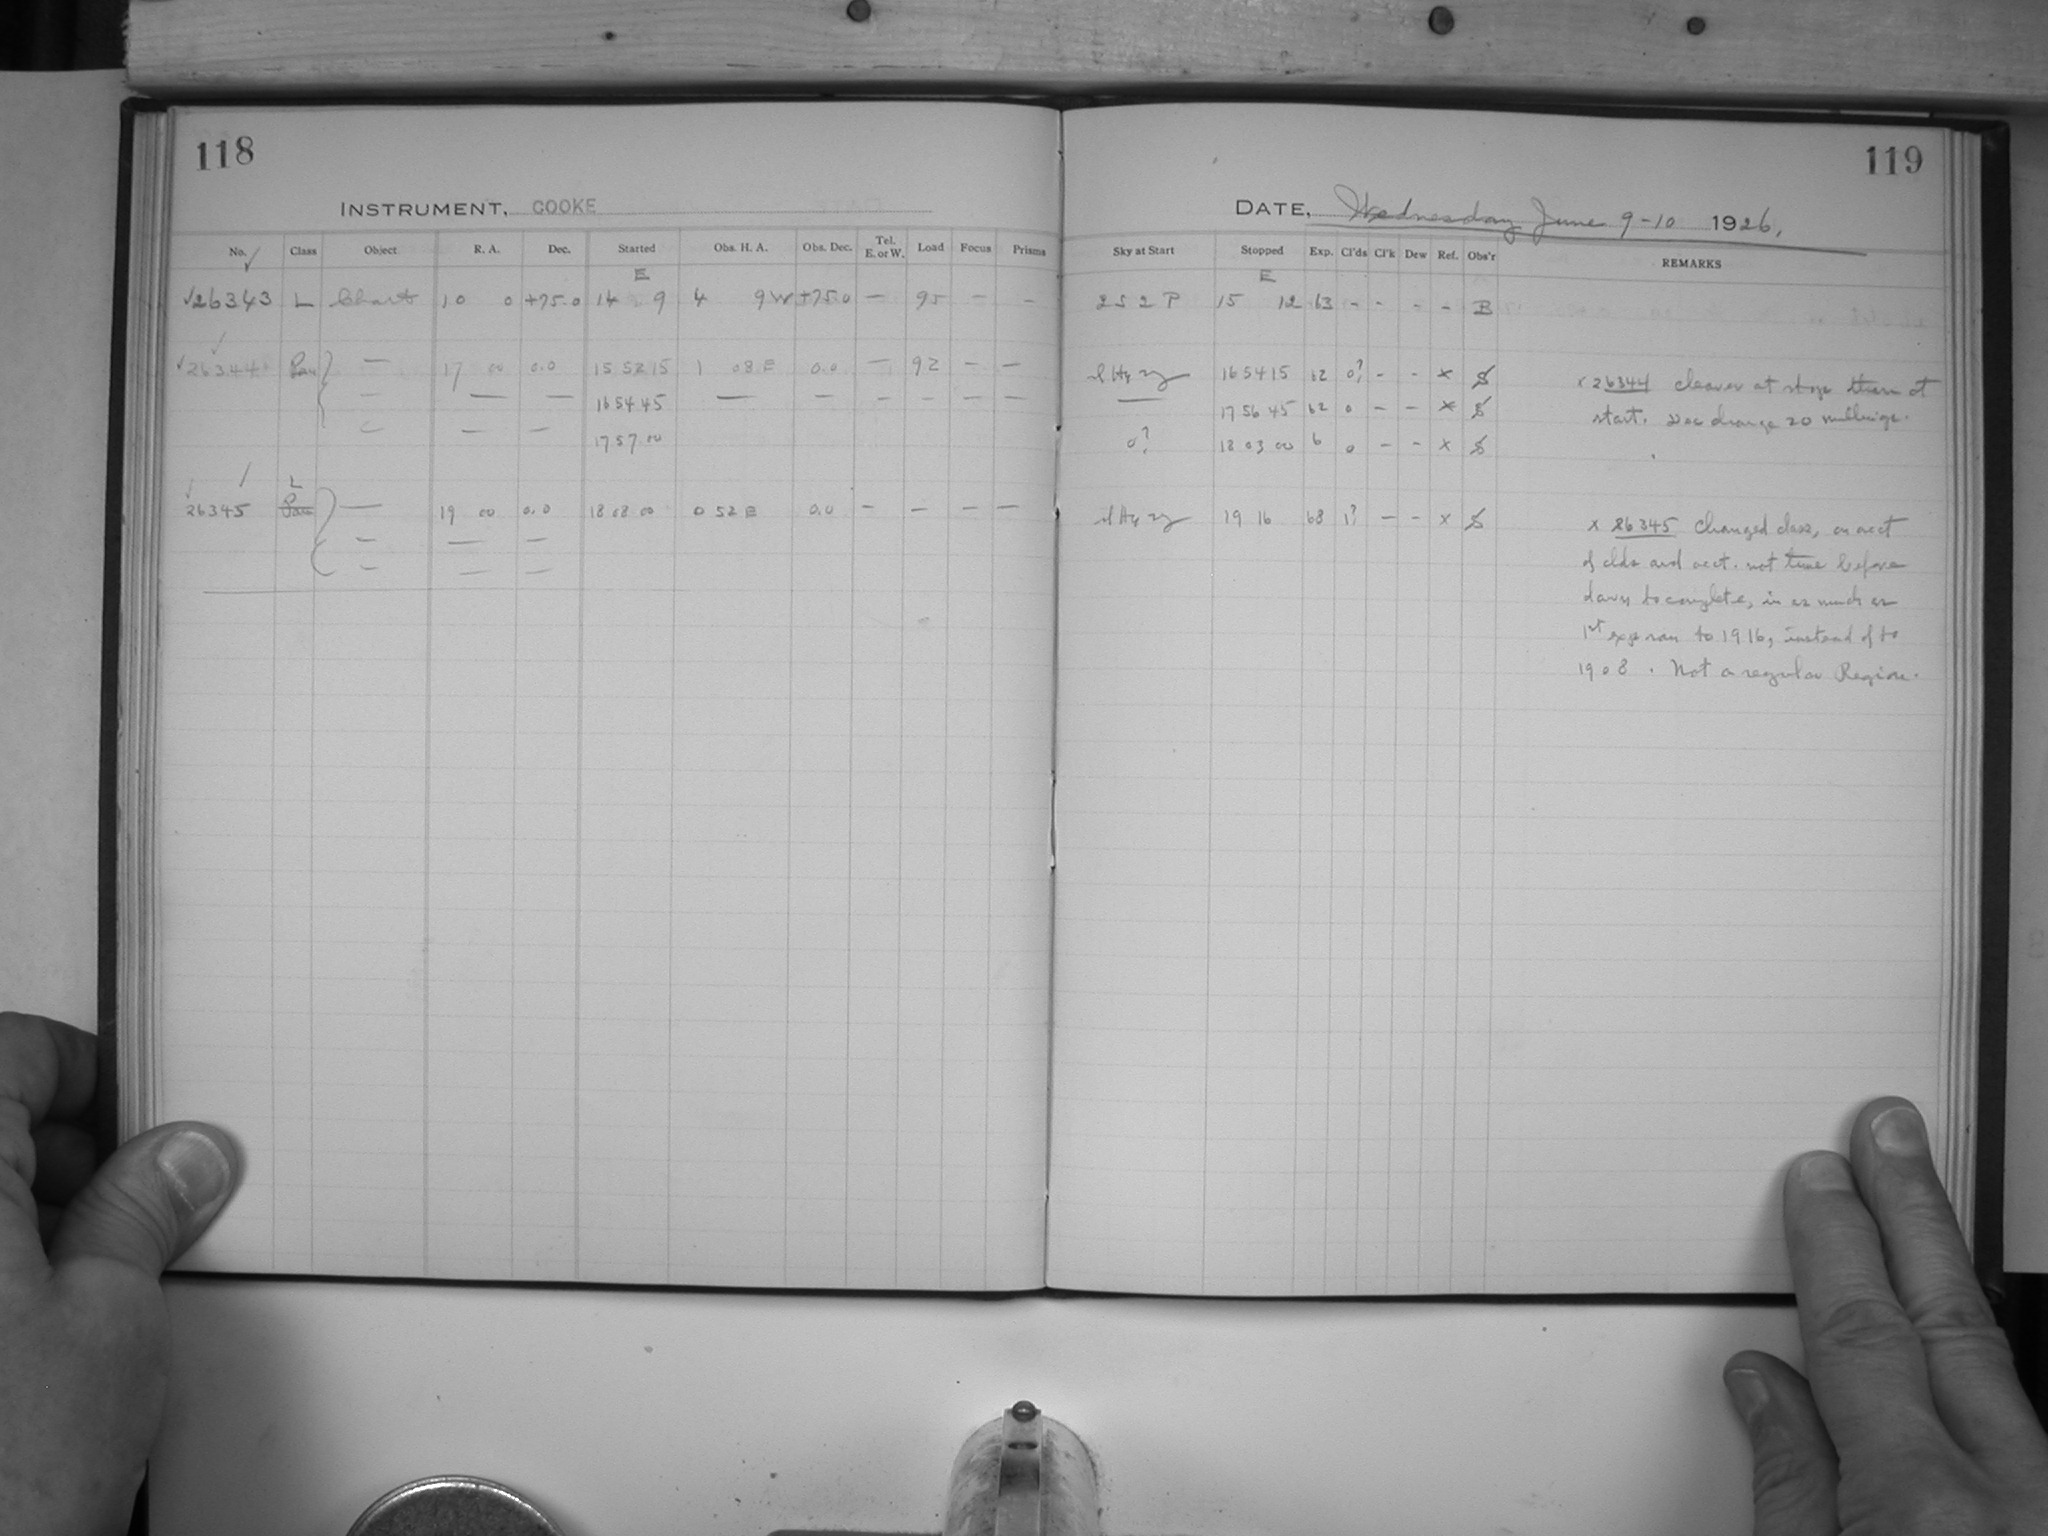 118
INSTRUMENT, COOKE
No. Class Object R. A. Dec. Started Obs. H. A. Obs. Dec. Tel. E. or W. Load Focus Prisms
E
✓26343 L Chart 10 0 +75.0 14 9 4 9 W +75.0 — 95 - -
✓26344 Pan — 17 00 0.0 15 52 15 1 08 E 0.0 — 92 — —
— — — 16 54 45 — — — — — —
— — — 17 57 00
L
26345 Pan — 19 00 0.0 18 08 00 0 52 E 0.0 — — — —
— — —
— — —
119
DATE, Wednesday June 9-10 1926,
Sky at Start Stopped Exp. Cl'ds Cl'k Dew Ref. Obs'r REMARKS
E
2 S 2 P 15 12 63 - - - - B
16 54 15 62 0? - - x S
— 17 56 45 62 0 — — x S
0? 18 03 00 6 0 — — x S
19 16 68 1? — — x S
x 26344 clearer at stop than at
start. Dec change 20
x 26345 Changed class, on acct
of clds and acct. not time before
dawn to complete, in as much as
1st exp ran to 19 16, instead of to
19 08. Not a regular Region.